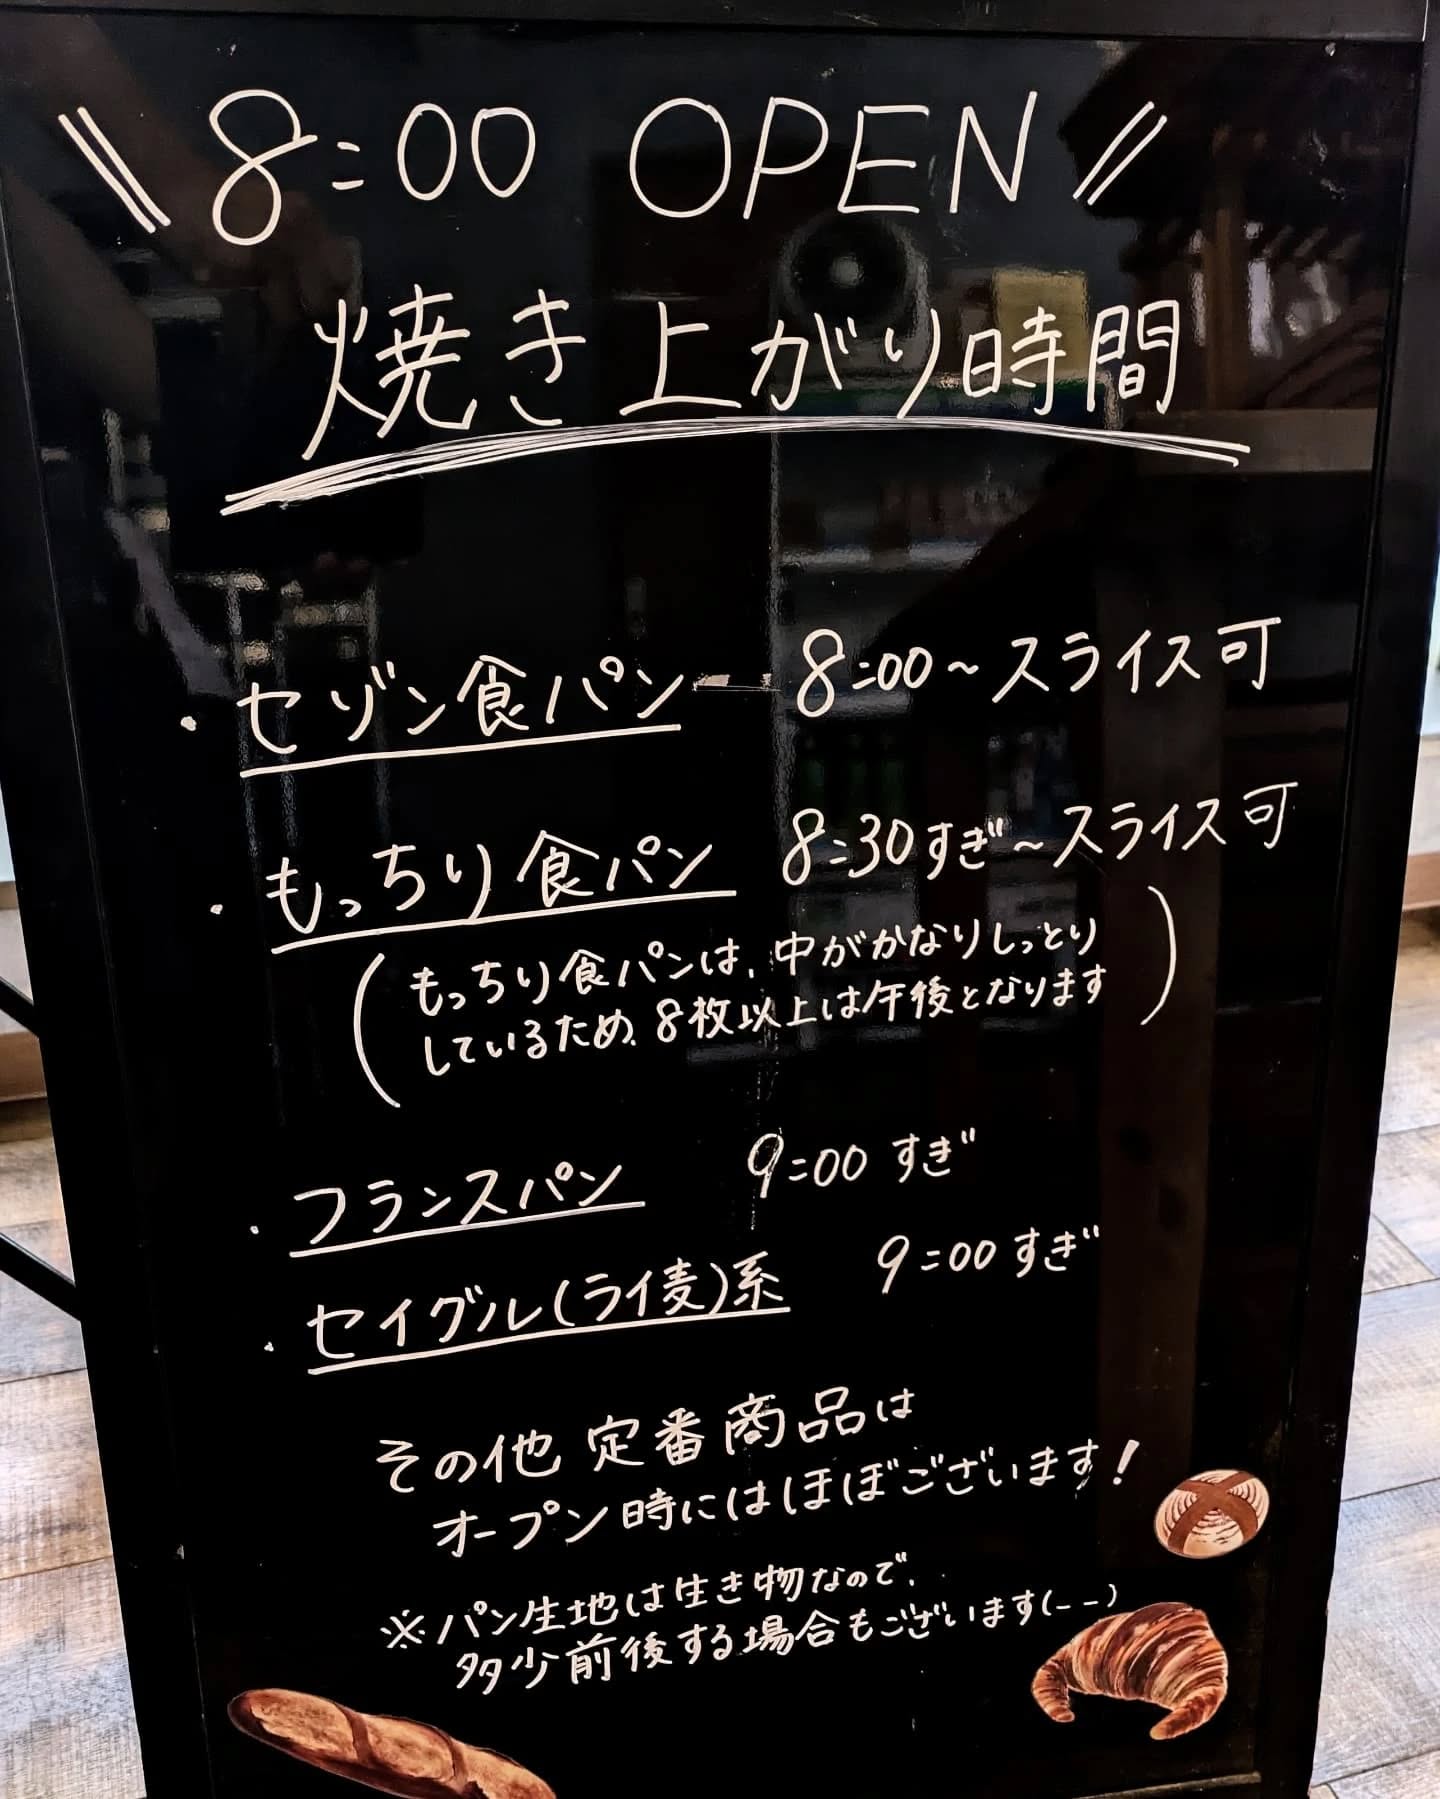 \\ 8:00 OPEN //
焼き上がり時間
・セゾン食パン 8:00~スライス可
・もっちり食パン 8:30すぎ~スライス可
(もっちり食パンは、中がかなりしっとり
しているため、8枚以上は午後となります)
・フランスパン 9:00 すぎ
・セイグル(ライ麦)系 9:00 すぎ
その他 定番商品は
オープン時にはほぼございます!
※パン生地は生き物なので、
多少前後する場合もございます(--)